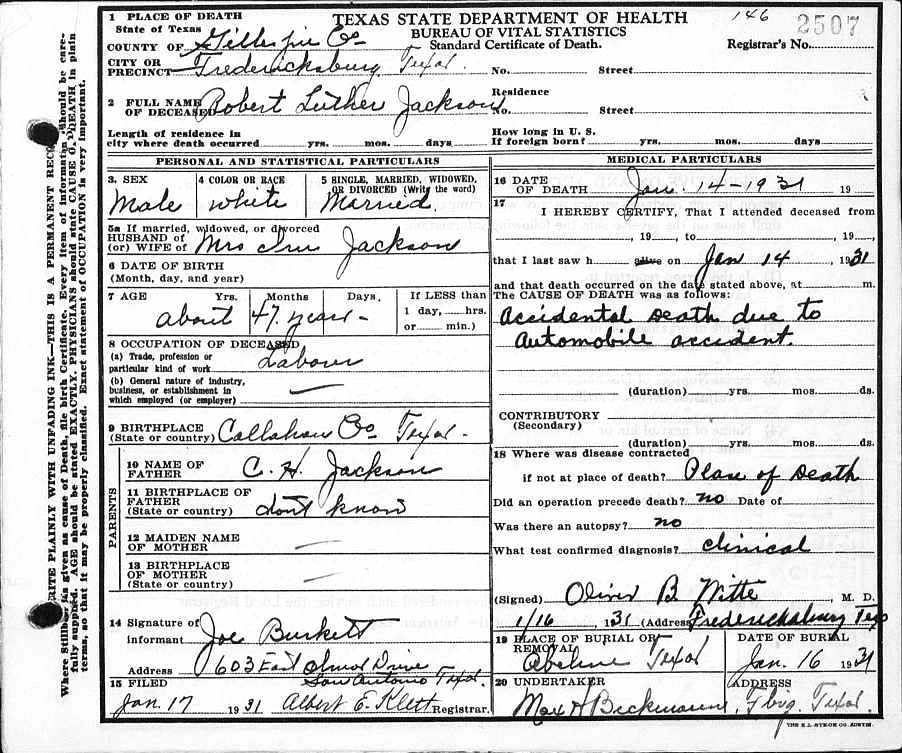 WRITE PLAINLY WITH UNFADING INK—THIS IS A PERMANENT RECORD
1 PLACE OF DEATH
State of Texas
COUNTY OF Gillespie Co
CITY OR PRECINCT Fredericksburg Texas.
TEXAS STATE DEPARTMENT OF HEALTH
BUREAU OF VITAL STATISTICS
Standard Certificate of Death.
146 2507
Registrar's No.
No. Street
2 FULL NAME OF DECEASED Robert Luther Jackson
Residence
No. Street
Length of residence in
city where death occurred yrs. mos. days
How long in U. S.
If foreign born? yrs. mos. days
PERSONAL AND STATISTICAL PARTICULARS
3. SEX
Male
4 COLOR OR RACE
white
5 SINGLE, MARRIED, WIDOWED,
OR DIVORCED (Write the word)
Married.
5a If married, widowed, or divorced
HUSBAND of
(or) WIFE of Mrs Jackson
6 DATE OF BIRTH
(Month, day, and year)
7 AGE Yrs. Months Days.
about 47 years –
If LESS than
1 day, hrs.
or min.)
8 OCCUPATION OF DECEASED
(a) Trade, profession or
particular kind of work Labour
(b) General nature of industry,
business, or establishment in
which employed (or employer) —
9 BIRTHPLACE
(State or country) Callahan Co Texas.
PARENTS
10 NAME OF FATHER C. H. Jackson
11 BIRTHPLACE OF FATHER
(State or country) don't know
12 MAIDEN NAME OF MOTHER —
13 BIRTHPLACE OF MOTHER
(State or country) —
14 Signature of
informant Joe Burkett
Address 603 East Drive
San Antonio Texas.
15 FILED
Jan. 17 1931 Albert E. Klett Registrar.
MEDICAL PARTICULARS
16 DATE OF DEATH Jan. 14 - 1931 19
17
I HEREBY CERTIFY, That I attended deceased from
, 19 , to , 19 ,
that I last saw h alive on Jan 14 , 1931
and that death occurred on the date stated above, at m.
The CAUSE OF DEATH was as follows:
Accidental Death due to
Automobile accident.
(duration) yrs. mos. ds.
CONTRIBUTORY
(Secondary)
(duration) yrs. mos. ds.
18 Where was disease contracted
if not at place of death? Place of Death
Did an operation precede death? no Date of
Was there an autopsy? no
What test confirmed diagnosis? clinical
(Signed) Oliver B Witte , M. D.
1/16 , 1931 (Address Fredericksburg Tex
19 PLACE OF BURIAL OR REMOVAL
Abilene Texas
DATE OF BURIAL
Jan. 16 1931
20 UNDERTAKER
Max H Beckmann,
ADDRESS
Fbig. Texas.
THE E.L. STECK CO. AUSTIN.